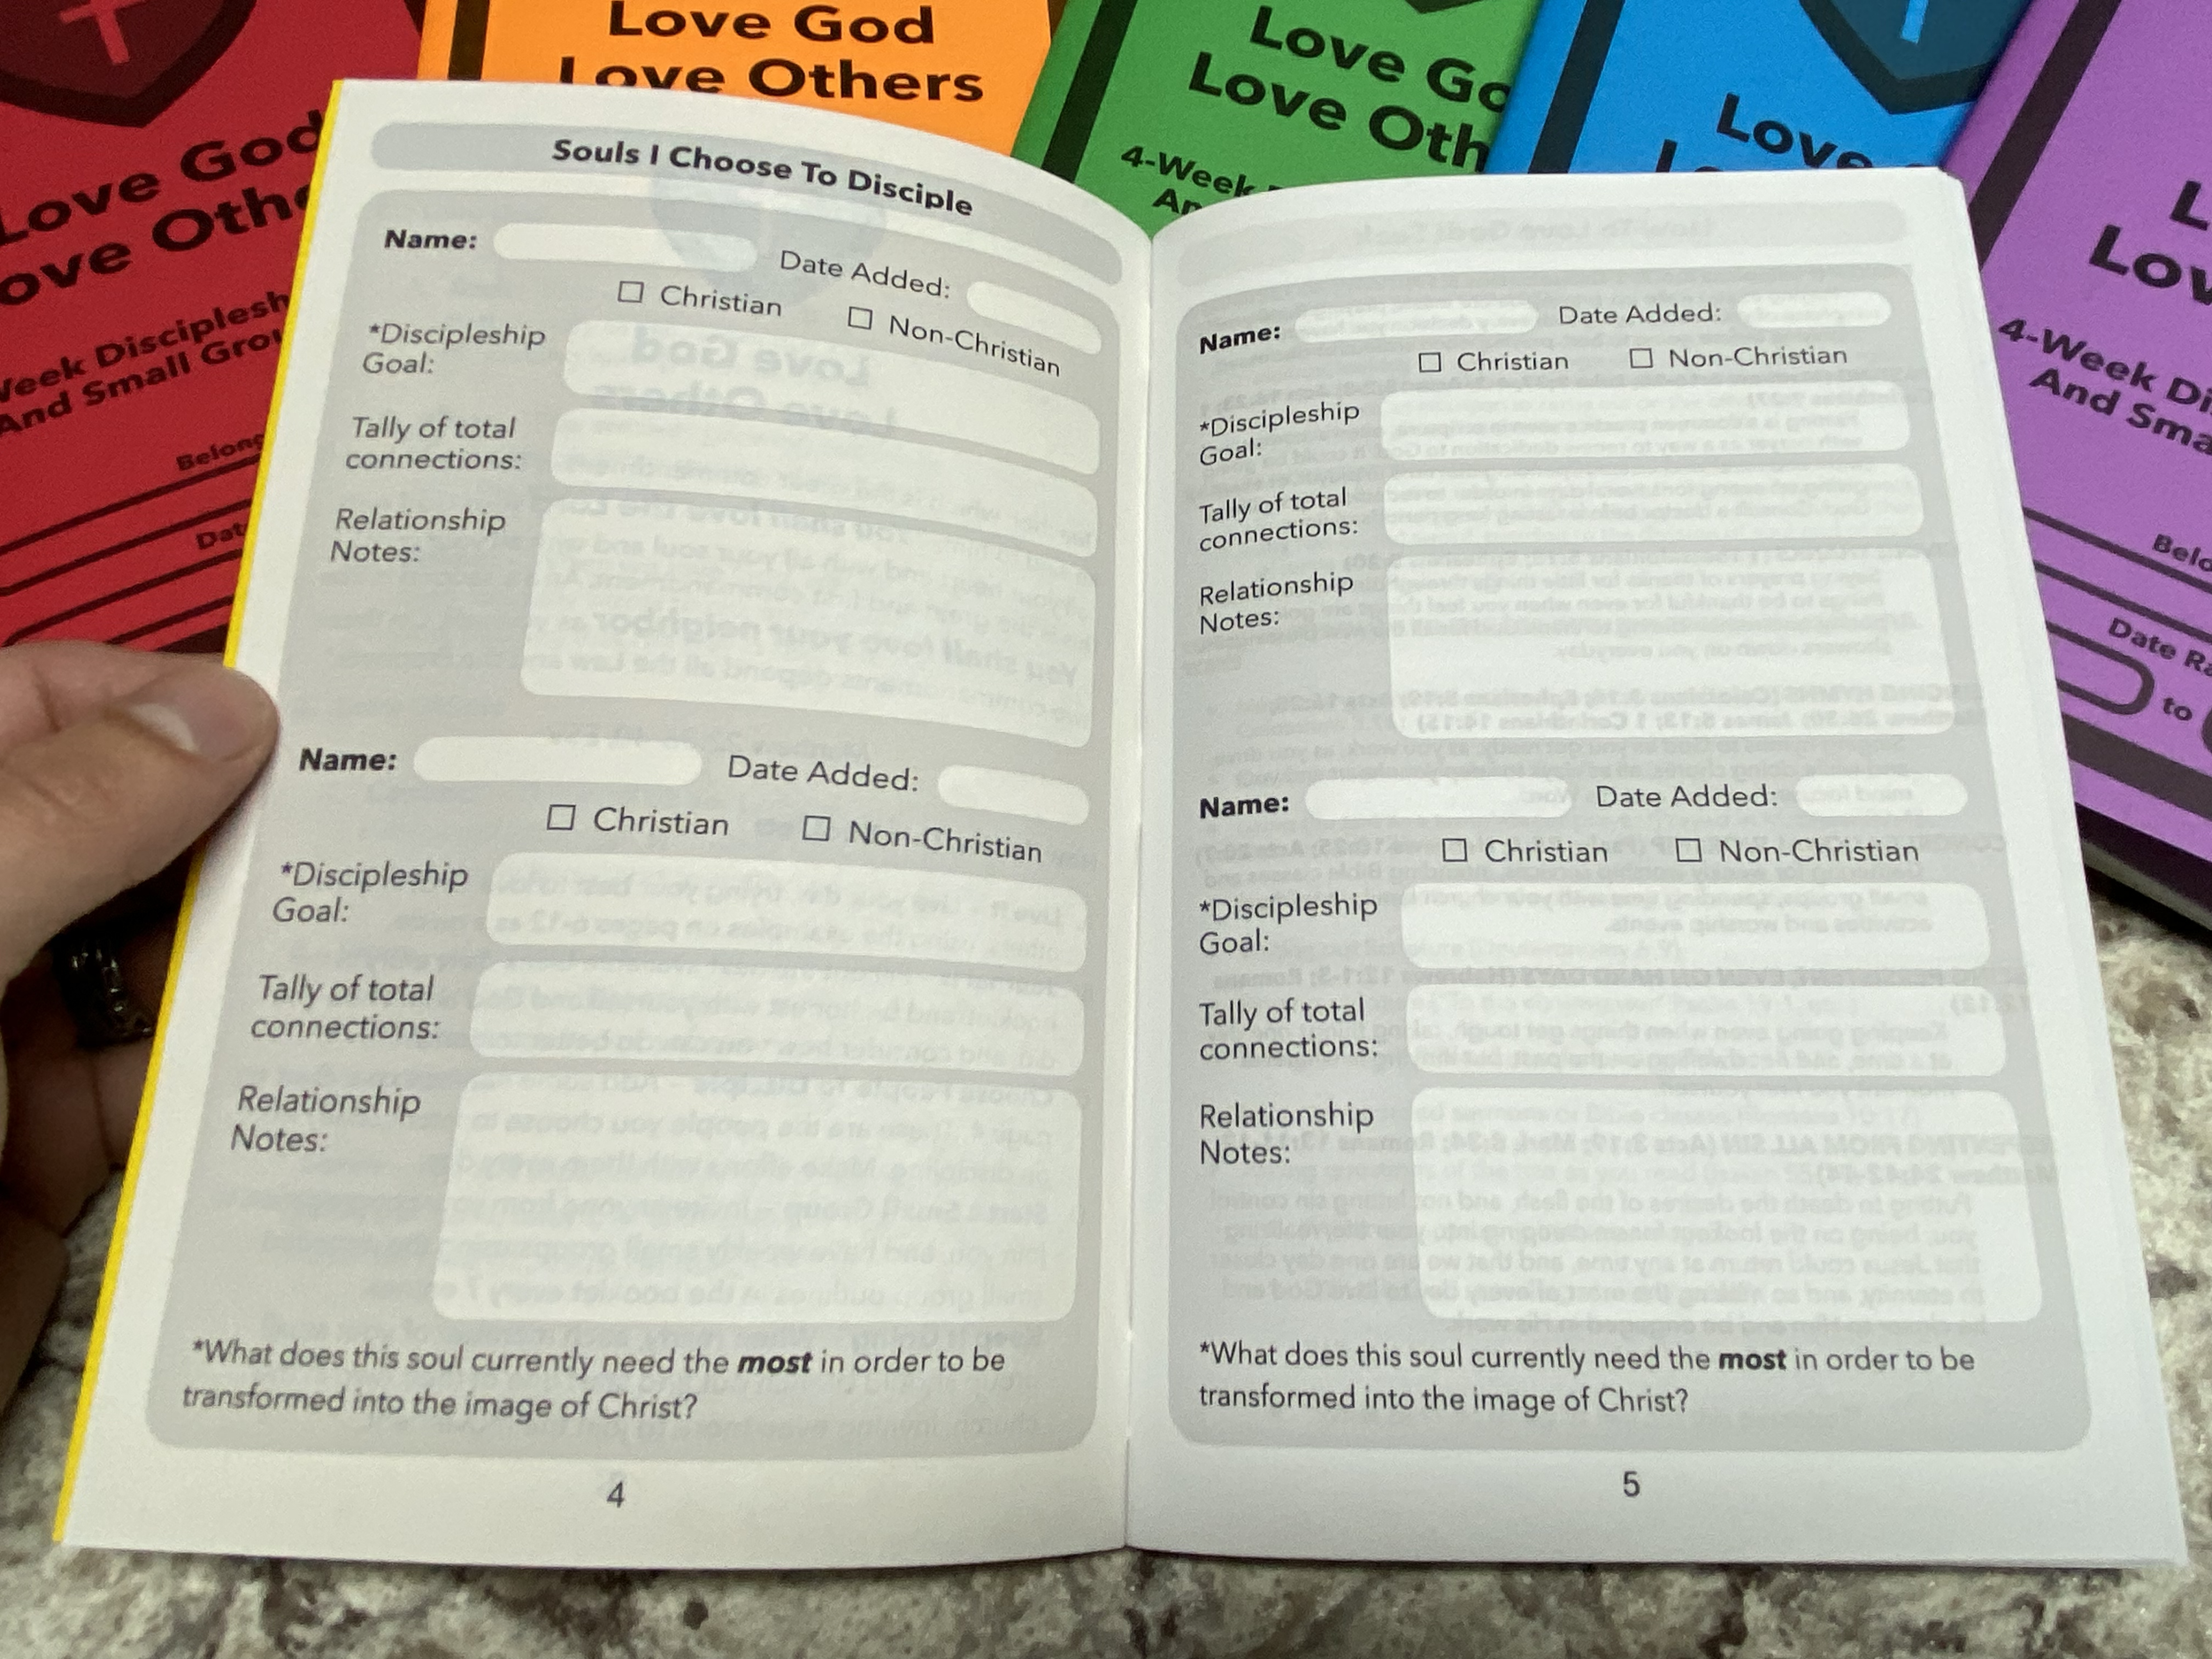 Love God
Love Othe
Week Disciplesh
And Small Grou
Belong
Dat
Love God
Love Others
Love Go
Love Oth
4-Week
An
Love
L
Lov
4-Week Di
And Sma
Belo
Date Ra
to
Souls I Choose To Disciple
Name: Date Added:
☐ Christian ☐ Non-Christian
*Discipleship
Goal:
Tally of total
connections:
Relationship
Notes:
Name: Date Added:
☐ Christian ☐ Non-Christian
*Discipleship
Goal:
Tally of total
connections:
Relationship
Notes:
*What does this soul currently need the most in order to be
transformed into the image of Christ?
4
Name: Date Added:
☐ Christian ☐ Non-Christian
*Discipleship
Goal:
Tally of total
connections:
Relationship
Notes:
Name: Date Added:
☐ Christian ☐ Non-Christian
*Discipleship
Goal:
Tally of total
connections:
Relationship
Notes:
*What does this soul currently need the most in order to be
transformed into the image of Christ?
5